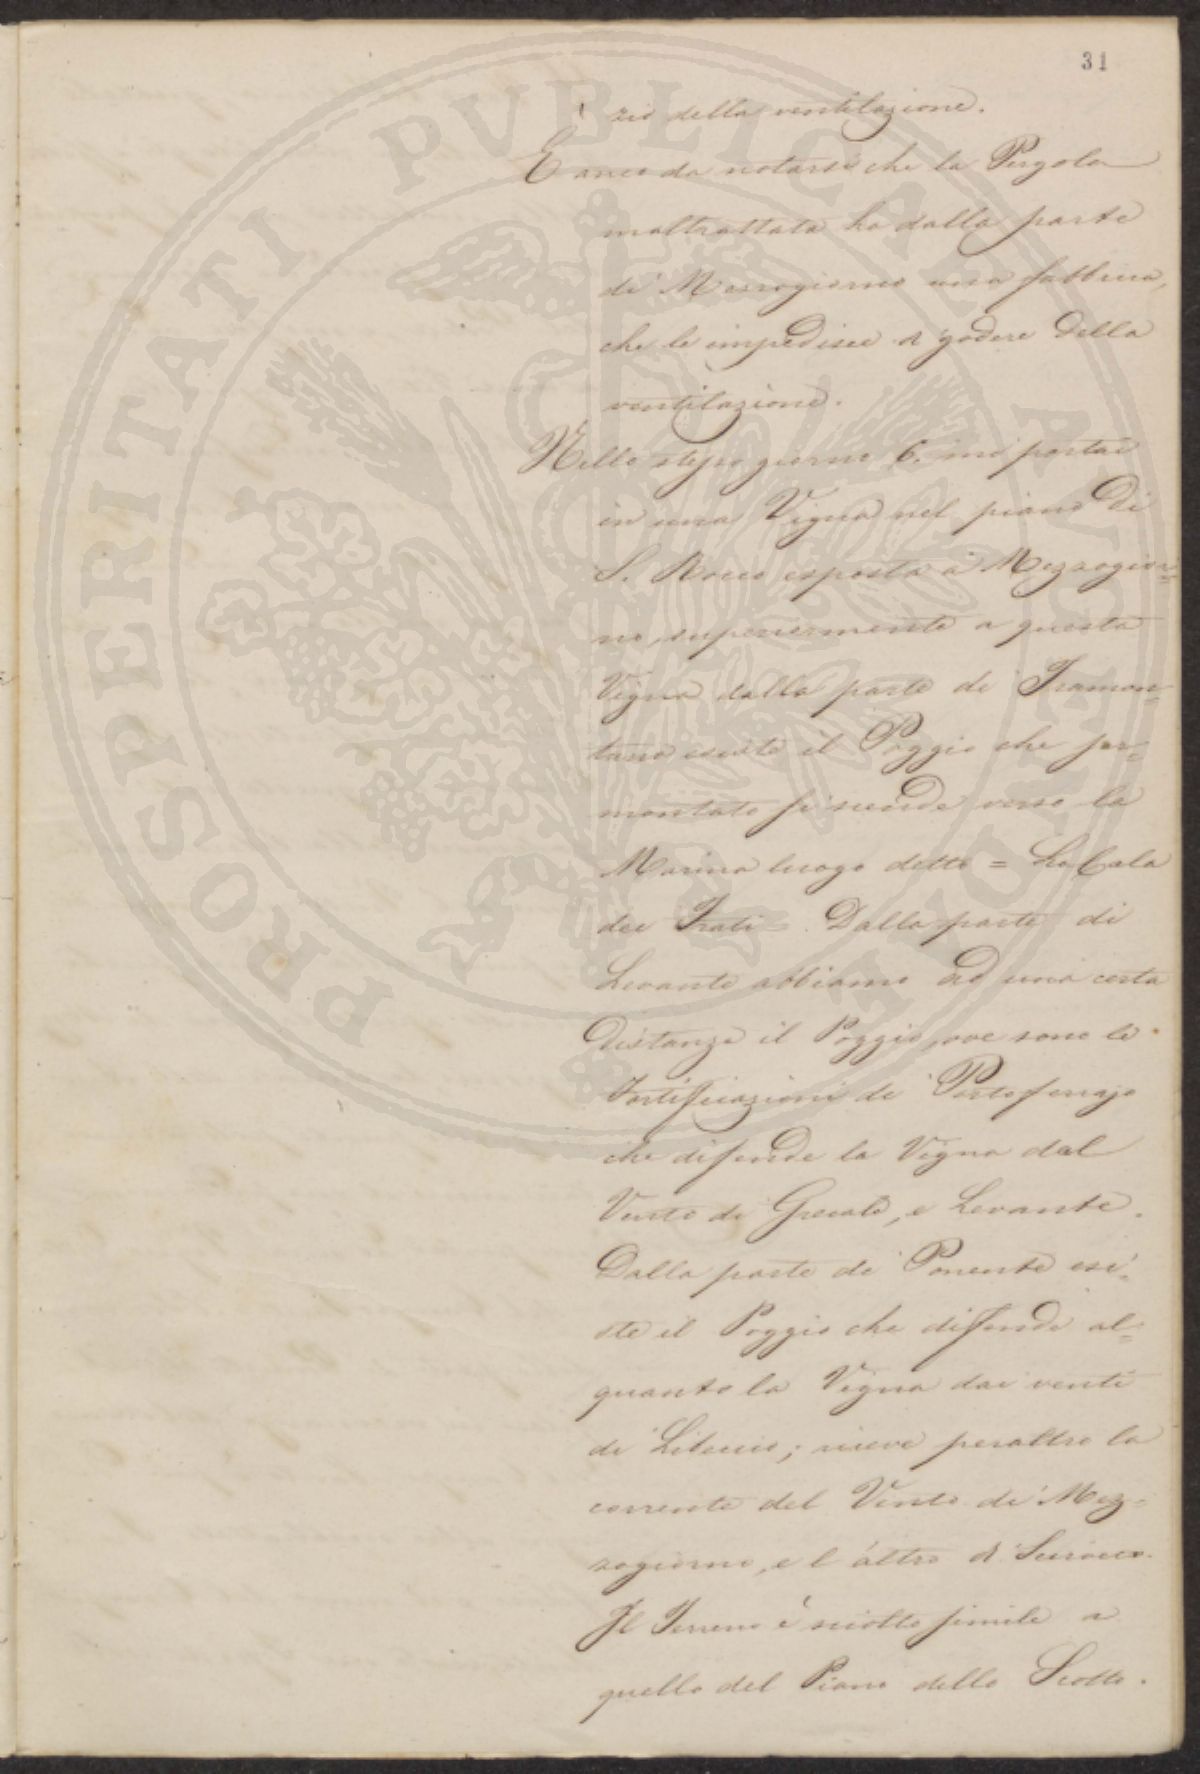 31
zio della ventilazione.
È anco da notarsi che la Pergola
maltrattata ha dalla parte
di Mezzogiorno una fabbrica,
che le impedisce a godere della
ventilazione.
Nello stesso giorno 6. mi portai
in una Vigna nel piano di
S. Rocco esposta a Mezzogior=
no, superiormente a questa
Vigna dalla parte di Tramon=
tana esiste il Poggio che sor=
montato si scende verso la
Marina luogo detto = La Cala
dei Frati =. Dalla parte di
Levante abbiamo ad una certa
distanza il Poggio, ove sono le
Fortificazioni di Portoferrajo
che difende la Vigna dal
Vento di Grecale, e Levante.
Dalla parte di Ponente esi=
ste il Poggio che difende al=
quanto la Vigna dai venti
di Libeccio; riceve peraltro la
corrente del Vento di Mez=
zogiorno, e l'altro di Scirocco.
Il Terreno è sciolto simile a
quello del Piano dello Scotto.
PROSPERITATI PVBLICAE AVGENDAE